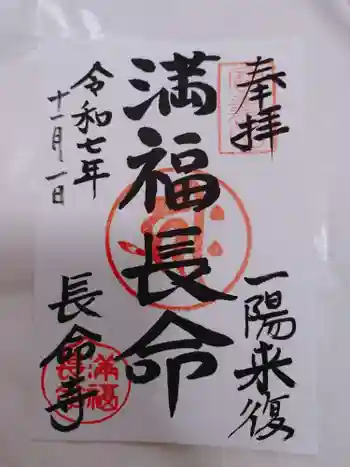 奉拝
一陽来復
満福長命
令和七年
十一月一日
長命寺
満福